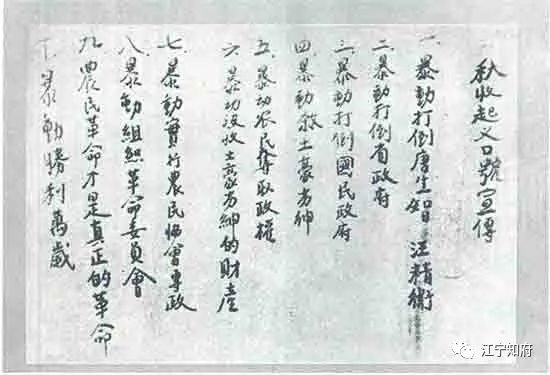 秋收起义口號宣傳
一、暴動打倒唐生智 汪精衛
二、暴動打倒省政府
三、暴動打倒國民政府
四、暴動殺土豪劣紳
五、暴动农民奪取政權
六、暴动没收土豪劣紳的財產
七、暴動實行農民協會專政
八、暴動組織革命委員會
九、農民革命才是真正的革命
十、暴動勝利萬歲
江宁知府